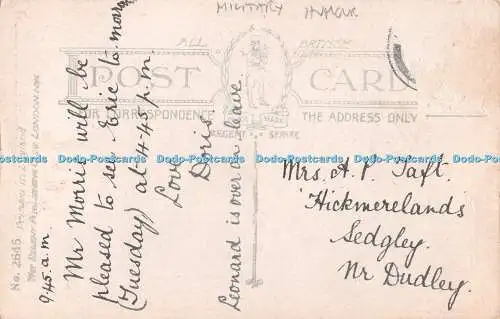 MILITARY HUMOUR
ALL BRITISH
POST CARD
FOR CORRESPONDENCE
THE ADDRESS ONLY
REGENT SERIES
No. 2645
9.45. a.m.
Mr Morris will be
pleased to see Eric to-morrow
(Tuesday) at 4.45 p.m.
Love
Doris
Leonard is over on leave.
Mrs. A. P. Taft.
Hickmerelands
Sedgley.
Nr Dudley.
Dodo Postcards Dodo Postcards Dodo Postcards Dodo Postcards Dodo Postcards